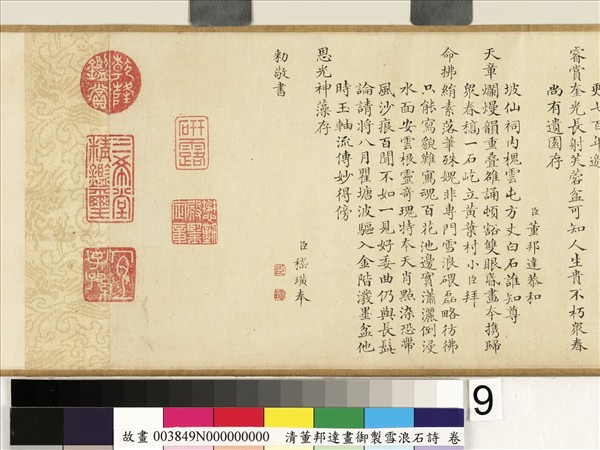 更七百年邊
睿賞奎光長射芙蓉盆可知人生貴不朽衆春
尚有遺園存
臣董邦達恭和
坡仙祠內槐雲屯方丈白石誰知尊
天章爛熳韻重疊雒誦頓豁雙眼昏畫本攜歸
衆春橋一石屹立黃葉村小臣拜
命拂絹素落筆殊媿非專門雪浪硯磊略彷彿
只能寫貌難寫魂百花池邊實瀟灑倒浸
水面安雲根靈奇瑰特奉天肖點染恐帶
風沙痕百聞不如一見好委曲仍與長髯
論請將八月瞿塘波驅入金階潑墨盆他
時玉軸流傳妙得傍
恩光神藻存
臣嵇璜奉
勅敬書
乾隆鑑賞
三希堂精鑑璽
宜子孫
研露
乾隆御覽之寶
9
故畫 003849N000000000 清董邦達畫御製雪浪石詩 卷